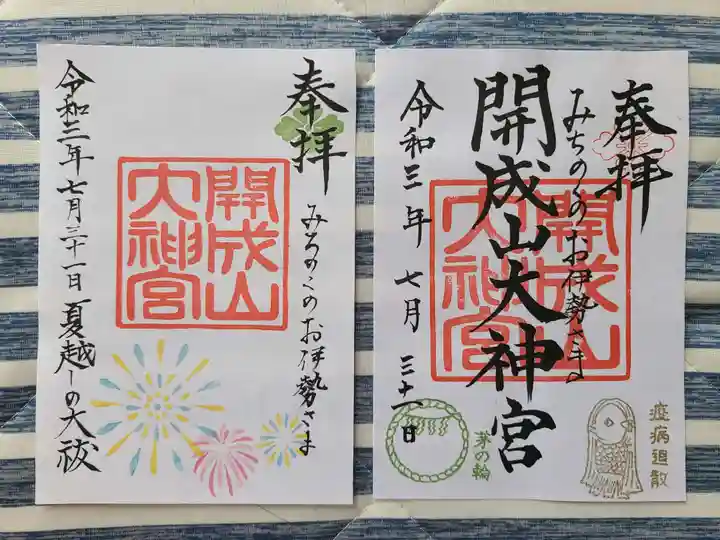 奉拝
みちのくのお伊勢さま
開成山大神宮
令和三年七月三十一日夏越しの大祓
奉拝
みちのくのお伊勢さま
開成山大神宮
開成山大神宮
令和三年七月三十一日
茅の輪
疫病退散